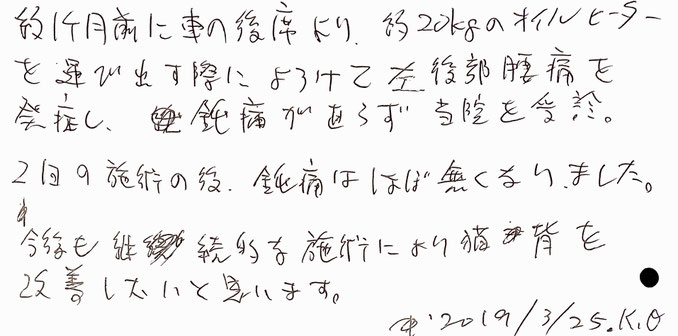 約1ケ月前に車の後席より、約20kgのオイルヒーター
を運び出す際によろけて左後部腰痛を
発症し、鈍痛が直らず当院を受診。
2回の施術の後、鈍痛はほぼ無くなりました。
今後も継続的な施術により猫背を
改善したいと思います。
2019/3/25.K.O